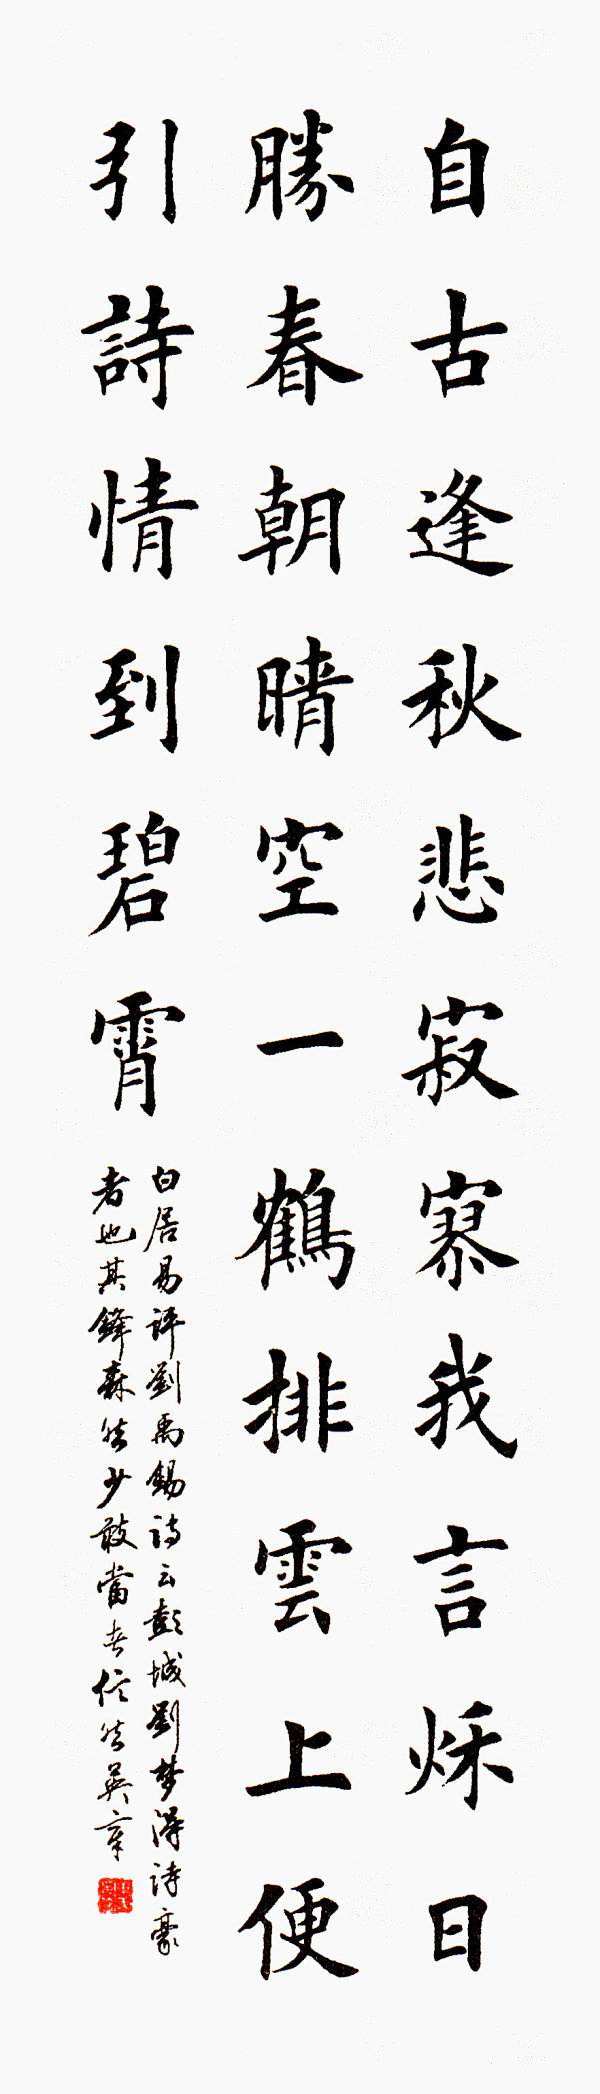 自古逢秋悲寂寥我言秌日
勝春朝晴空一鶴排雲上便
引詩情到碧霄
白居易評劉禹錫詩云彭城劉梦得詩豪
者也其鋒森然少敢當者信然英章